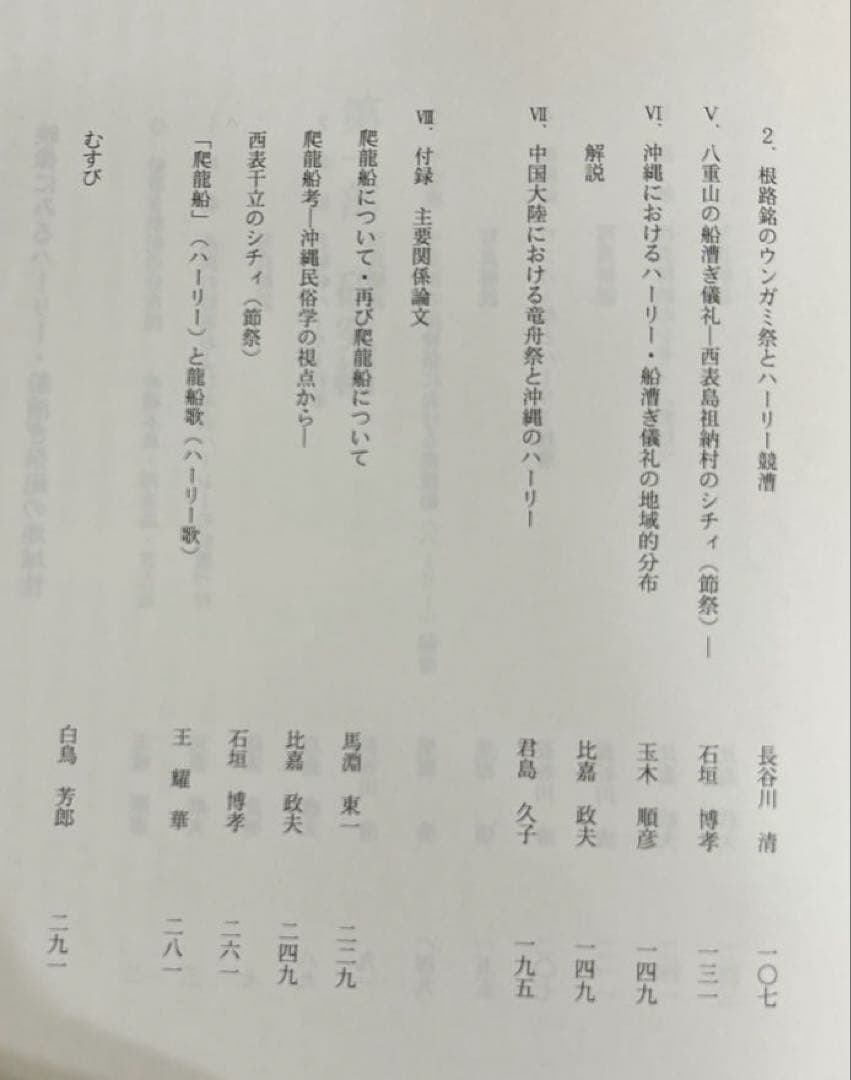 2、根路銘のウンガミ祭とハーリー競漕　長谷川　清　一〇七
Ⅴ、八重山の船漕ぎ儀礼―西表島祖納村のシチィ（節祭）―　石垣　博孝　一三一
Ⅵ、沖縄におけるハーリー・船漕ぎ儀礼の地域的分布　玉木　順彦　一四九
解説　比嘉　政夫　一四九
Ⅶ、中国大陸における竜舟祭と沖縄のハーリー　君島　久子　一九五
Ⅷ、付録　主要関係論文
爬龍船について・再び爬龍船について　馬淵　東一　二二九
爬龍船考―沖縄民俗学の視点から―　比嘉　政夫　二四九
西表干立のシチィ（節祭）　石垣　博孝　二六一
「爬龍船」（ハーリー）と龍船歌（ハーリー歌）　王　耀　華　二八一
むすび　白鳥　芳郎　二九一